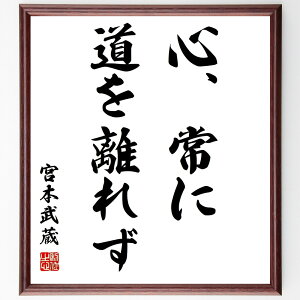 心、常に
道を離れず
宮本武蔵